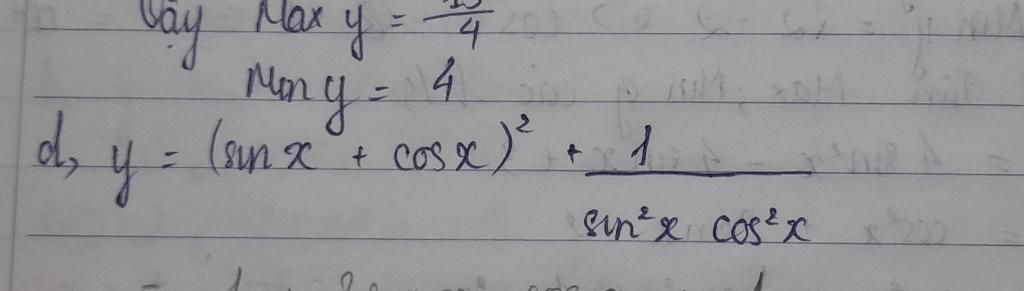 Vậy Max y = /4
Min y = 4
d, y = (sin x + cos x)² + 1 / sin²x cos²x